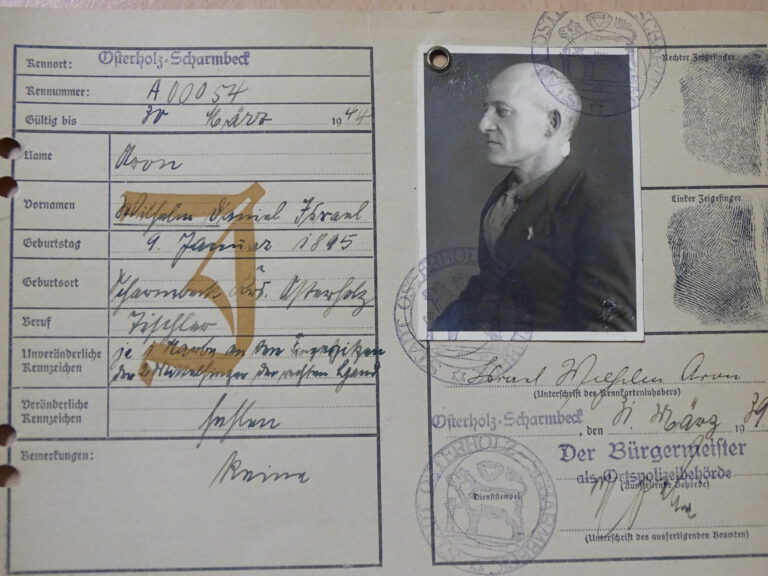 Kennort: Osterholz-Scharmbeck
Kennummer: A 00054
Gültig bis 30 März 1944
Name Aron
Vornamen Wilhelm Daniel Israel
Geburtstag 9. Januar 1895
Geburtsort Scharmbeck Krs. Osterholz
Beruf Tischler
Unveränderliche Kennzeichen je 1 Narbe an den Fingerspitzen
der 2. Mittelfinger der rechten Hand
Veränderliche Kennzeichen fehlen
Bemerkungen: Keine
J
Rechter Zeigefinger
Linker Zeigefinger
Israel Wilhelm Aron
(Unterschrift des Kennkarteninhabers)
Osterholz-Scharmbeck, den 31. März 1939
Der Bürgermeister
als Ortspolizeibehörde
(Ausstellende Behörde)
Dienststempel
STADT OSTERHOLZ-SCHARMBECK
(Unterschrift des ausfertigenden Beamten)